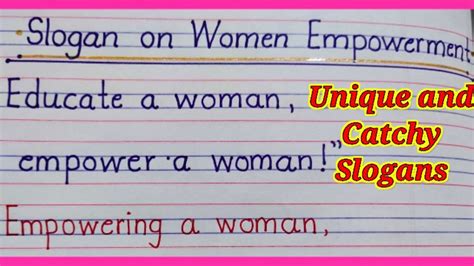 Slogan on Women Empowerment
Educate a woman,
empower a woman!"
Empowering a woman,
Unique and
Catchy
Slogans